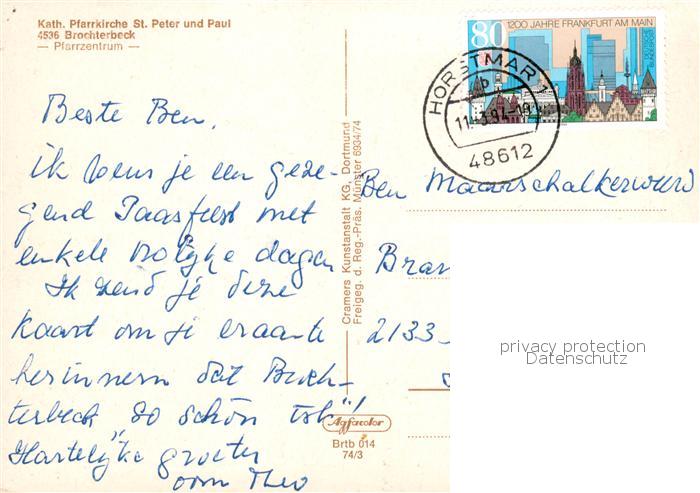 Kath. Pfarrkirche St. Peter und Paul
4536 Brochterbeck
— Pfarrzentrum —
Beste Ben,
ik wens je een geze-
gend Paasfeest met
enkele vrolijke dagen
Ik zend je deze
kaart om je eraan te
herinneren dat Broch-
terbeck "so schön ist"!
Hartelijke groeten
oom Theo
Cramers Kunstanstalt KG, Dortmund
Freigeg. d. Reg.-Präs. Münster 6934/74
Agfacolor
Brtb 014
74/3
80
1200 JAHRE FRANKFURT AM MAIN
DEUTSCHE BUNDESPOST
HORSTMAR 1
b
48612
Ben Maarschalkerweerd
Bran
2133
privacy protection
Datenschutz